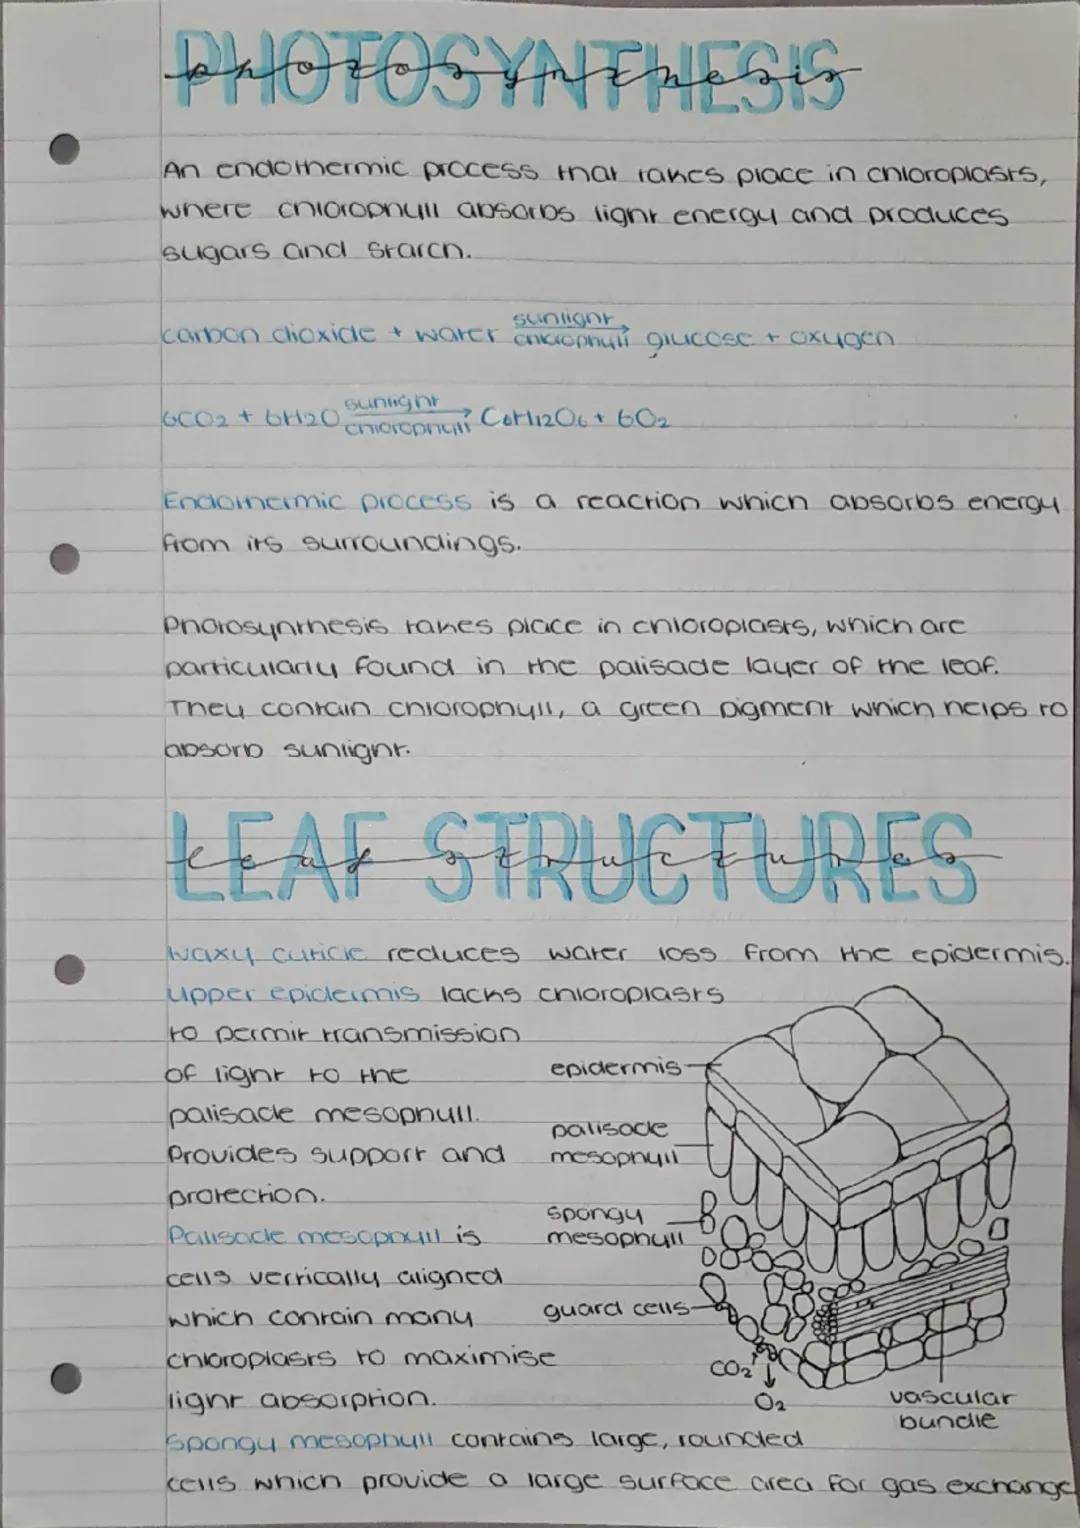 PHOTOSYNTHESIS
photosynthesis
An endothermic process that takes place in chloroplasts,
where chlorophyll absorbs light energy and produces
sugars and starch.
carbon dioxide + water sunlight chlorophyll glucose + oxygen
6CO2 + 6H2O sunlight chlorophyll C6H12O6 + 6O2
Endothermic process is a reaction which absorbs energy
from its surroundings.
Photosynthesis takes place in chloroplasts, which are
particularly found in the palisade layer of the leaf.
They contain chlorophyll, a green pigment which helps to
absorb sunlight.
LEAF STRUCTURES
leaf structures
Waxy cuticle reduces water loss from the epidermis.
Upper epidermis lacks chloroplasts
to permit transmission
of light to the
palisade mesophyll.
Provides support and
protection.
Palisade mesophyll is
cells vertically aligned
which contain many
chloroplasts to maximise
light absorption.
Spongy mesophyll contains large, rounded
cells which provide a large surface area for gas exchange
epidermis
palisade
mesophyll
spongy
mesophyll
guard cells
CO2
O2
vascular
bundle